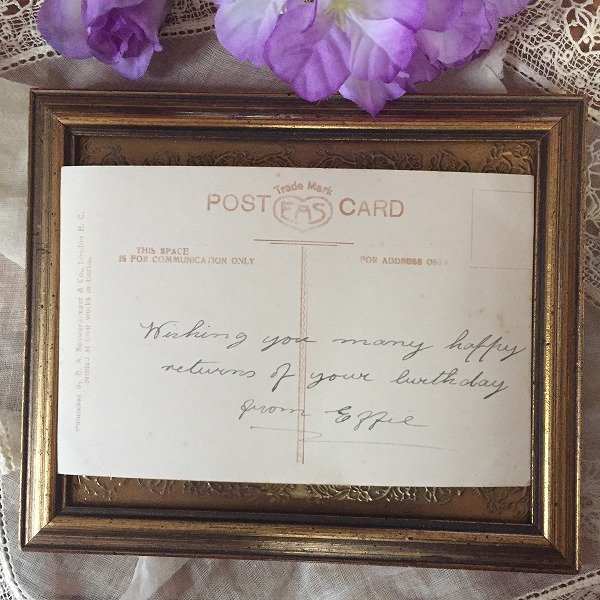 Trade Mark
POST EAS CARD
THIS SPACE
IS FOR COMMUNICATION ONLY
FOR ADDRESS ONLY
Wishing you many happy
returns of your birthday
from Effie
Published by E. A. Schwerdtfeger & Co., London E. C.
printed at their works in Berlin.